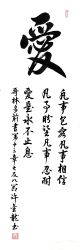 愛
凡事包容凡事相信
凡事盼望凡事忍耐
愛是永不止息
哥林多前書第十三章